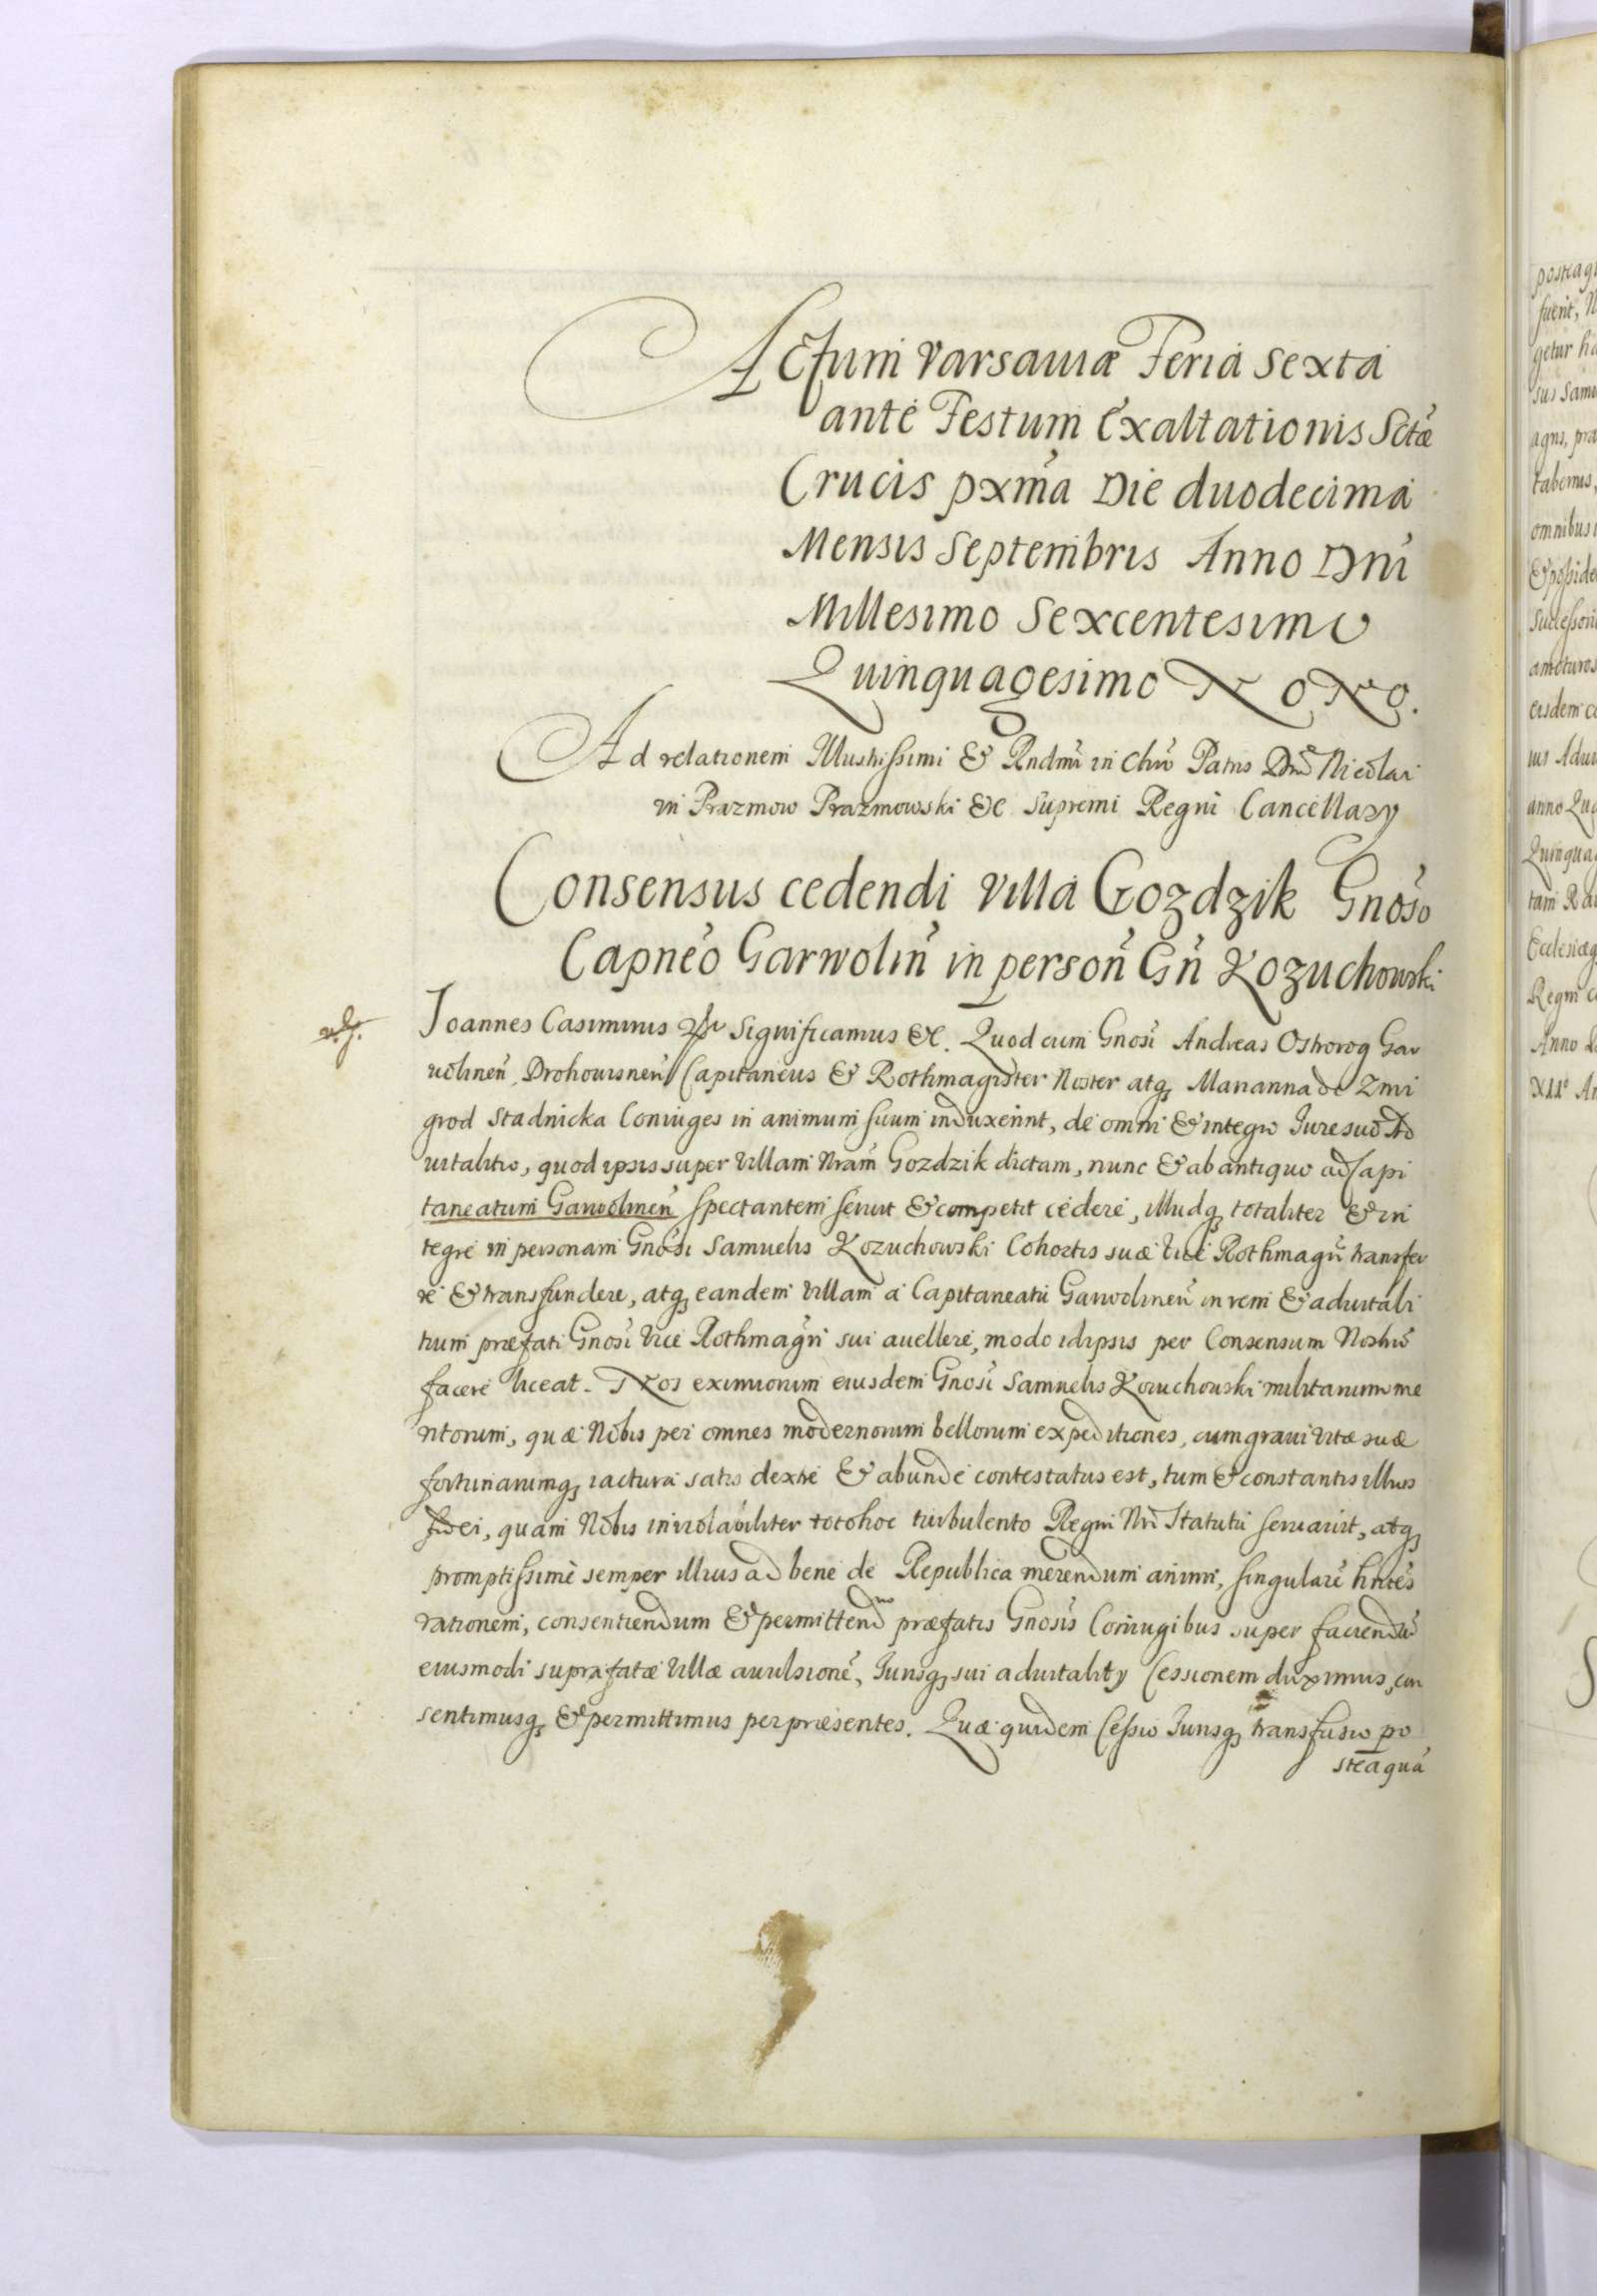 Actum Varsaviæ Feria Sexta
ante Festum Exaltationis Sctæ
Crucis pxma Die duodecima
Mensis Septembris Anno Dni
Millesimo Sexcentesimo
Quinquagesimo Nono.
Ad relationem Illustrissimi & Rndmi in Chro Patris Dni Nicolai
in Prazmow Prazmowski &c Supremi Regni Cancellarij
Consensus cedendi Villa Gozdzik Gnoso
Capneo Garwolin in person Gn Kozuchowski
Joannes Casimirus Significamus &c. Quod cum Gnosi Andreas Ostrorog Gar
uolinen, Drohouisnen Capitaneus & Rothmagister Noster atq Marianna de Zmi
grod Stadnicka Coniuges in animum suum induxerint, de omni & integro Jure suo Ad
uitalitio, quod ipsis super Villam Nram Gozdzik dictam, nunc & ab antiquo ad Capi
taneatum Garwolinen spectantem seruit & competit cedere, illudq totaliter & in
tegre in personam Gnosi Samuelis Kozuchowski Cohortis suæ Vice Rothmagri transfer
re & transfundere, atq eandem Villam a Capitaneatu Garwolinen in rem & aduitali
tium præfati Gnosi Vice Rothmagri sui auellere, modo id ipsis per Consensum Nostru
facere liceat. Nos eximiorum eiusdem Gnosi Samuelis Kozuchowski militarium me
ritorum, quæ Nobis per omnes modernorum bellorum expeditiones, cum graui Vitæ suæ
fortunarumq iactura satis dextre & abunde contestatus est, tum & constantis illius
fidei, quam Nobis inviolabiliter toto hoc turbulento Regni Nri Statutu seruauit, atq
promptissime semper illius ad bene de Republica merendum animi, singulare hntes
rationem, consentiendum & permittendmo præfatis Gnosis Coniugibus super faciendu
eiusmodi suprafatæ Villæ auulsione, Jurisq sui aduitalitij Cessionem duximus, con
sentimusq & permittimus per præsentes. Quæ quidem Cessio Jurisq transfusio po
steaqua
posteaq
fuerit, N
getur ha
sus Samu
agris, pra
tabernis,
omnibus
& posside
Successori
amoturos
eisdem c
ius Adui
anno Qu
Quinqua
tam R
Ecclesiæq
Regni c
Anno
XII An